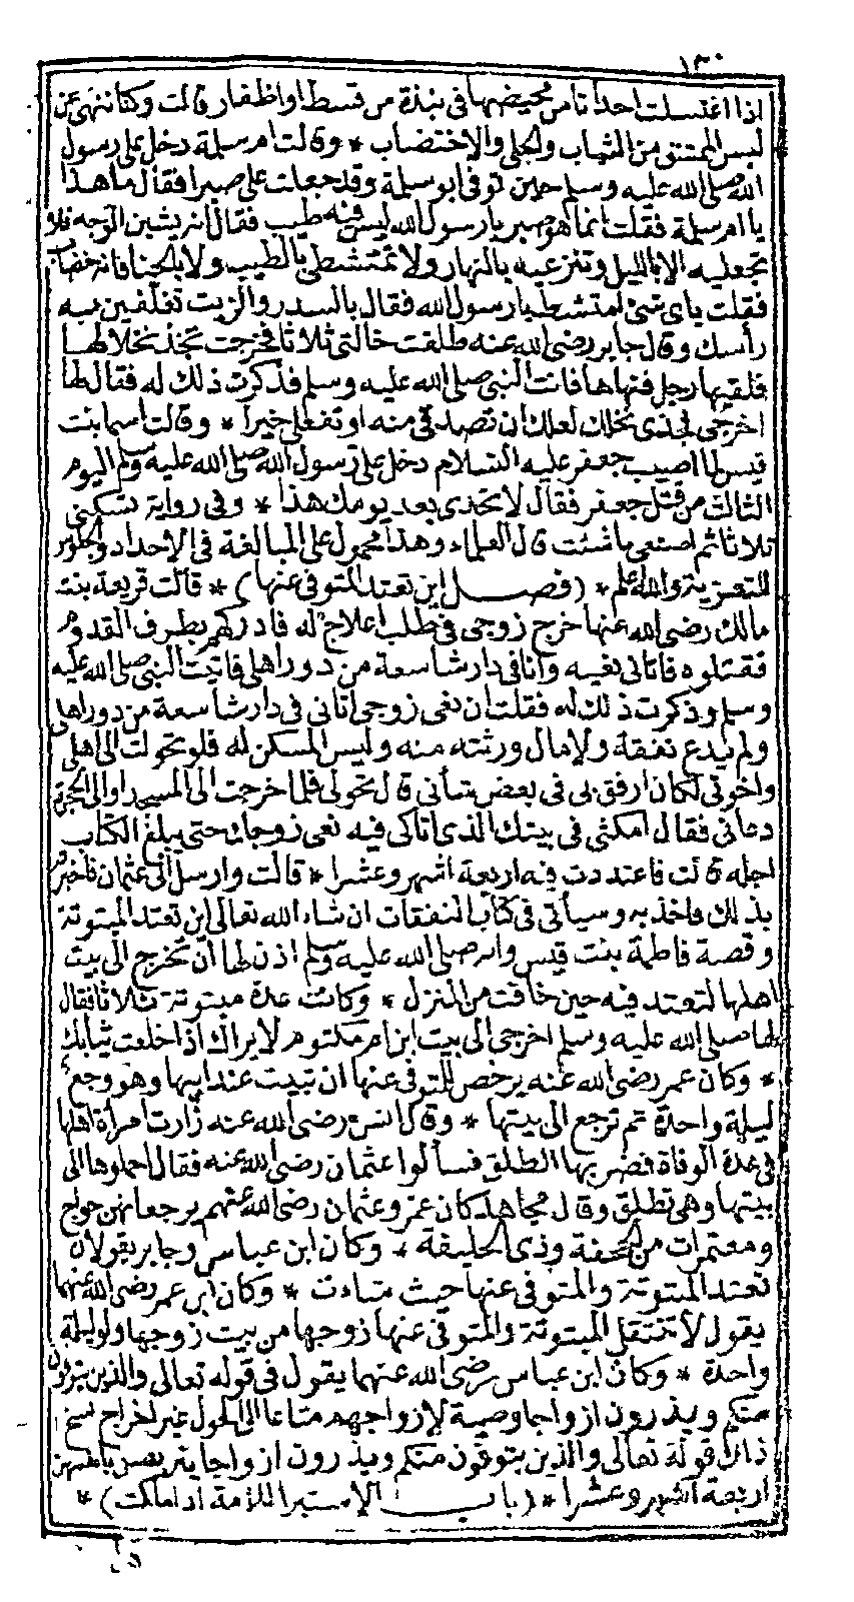 ١٣٠
اذا اغتسلت احدانا من محيضها فى نبذة من قسط او اظفار قالت وكنا ننهى عن
لبس الممشق من الثياب والحلى والاختضاب * وقالت ام سلمة دخل على رسول
الله صلى الله عليه وسلم حين توفى ابو سلمة وقد جعلت على صبرا فقال ما هذا
يا ام سلمة فقلت انما هو صبر يا رسول الله ليس فيه طيب فقال انه يشين الوجه فلا
تجعليه الا بالليل وتنزعيه بالنهار ولا تمتشطى بالطيب ولا بالحنا فانه خضاب
فقلت باى شئ امتشط يا رسول الله فقال بالسدر والزيت تغلفين به
رأسك وقال جابر رضى الله عنه طلقت خالتى ثلاثا فخرجت تجذ نخلا لها
فلقيها رجل فنهاها فاتت النبى صلى الله عليه وسلم فذكرت ذلك له فقال لها
اخرجى فجذى نخلك لعلك ان تصدقى منه او تفعلى خيرا * وقالت اسما بنت
عميس لما اصيب جعفر عليه السلام دخل على رسول الله صلى الله عليه وسلم اليوم
الثالث من قتل جعفر فقال لا تحدى بعد يومك هذا * وفى رواية تسكنى
ثلاثا ثم اصنعى ما شئت قال العلماء وهذا محمول على المبالغة فى الاحداد والجلوس
للتعزية والله اعلم * (فصل اين تعتد المتوفى عنها) * قالت فريعة بنت
مالك رضى الله عنها خرج زوجى فى طلب اعلاج له فادركهم بطرف القدوم
فقتلوه فاتانى نعيه وانا فى دار شاسعة من دور اهلى فاتيت النبى صلى الله عليه
وسلم وذكرت ذلك له فقلت ان نعى زوجى اتانى فى دار شاسعة من دور اهلى
ولم يدع نفقة ولا مال ورثته منه وليس المسكن له فلو تحولت الى اهلى
واخوتى لكان ارفق بى فى بعض شأنى قال تحولى فلما خرجت الى المسجد او الى الحجرة
دعانى فقال امكثى فى بيتك الذى اتاكى فيه نعى زوجك حتى يبلغ الكتاب
اجله قالت فاعتددت فيه اربعة اشهر وعشرا * قالت وارسل الى عثمان فاخبرته
بذلك فاخذ به وسيأتى فى كتاب النفقات ان شاء الله تعالى اين تعتد المبتوتة
وقصة فاطمة بنت قيس وانه صلى الله عليه وسلم اذن لها ان تخرج الى بيت
اهلها لتعتد فيه حين خافت من المنزل * وكانت عدة مبتوتة ثلاثا فقال
لها صلى الله عليه وسلم اخرجى الى بيت ابن ام مكتوم لا يراك اذا خلعت ثيابك
* وكان عمر رضى الله عنه يرخص للمتوفى عنها ان تبيت عند ابيها وهو وجع
ليلة واحدة ثم ترجع الى بيتها * وقال انس رضى الله عنه زارت امرأة اهلها
فى عدة الوفاة فضربها الطلق فسألوا عثمان رضى الله عنه فقال احملوها الى
بيتها وهى تطلق وقال مجاهد كان عمر وعثمان رضى الله عنهم يرجعانهن حواج
ومعتمرات من الجحفة وذى الحليفة * وكان ابن عباس وجابر يقولان
تعتد المبتوتة والمتوفى عنها حيث شاءت * وكان ابن عمر رضى الله عنهما
يقول لا تنتقل المبتوتة والمتوفى عنها زوجها من بيت زوجها ولو ليلة
واحدة * وكان ابن عباس رضى الله عنهما يقول فى قوله تعالى والذين يتوفون
منكم ويذرون ازواجا وصية لازواجهم متاعا الى الحول غير اخراج نسخ
ذلك قوله تعالى والذين يتوفون منكم ويذرون ازواجا يتربصن بانفسهن
اربعة اشهر وعشرا * (باب الاستبرا للامة اذا ملكت) *